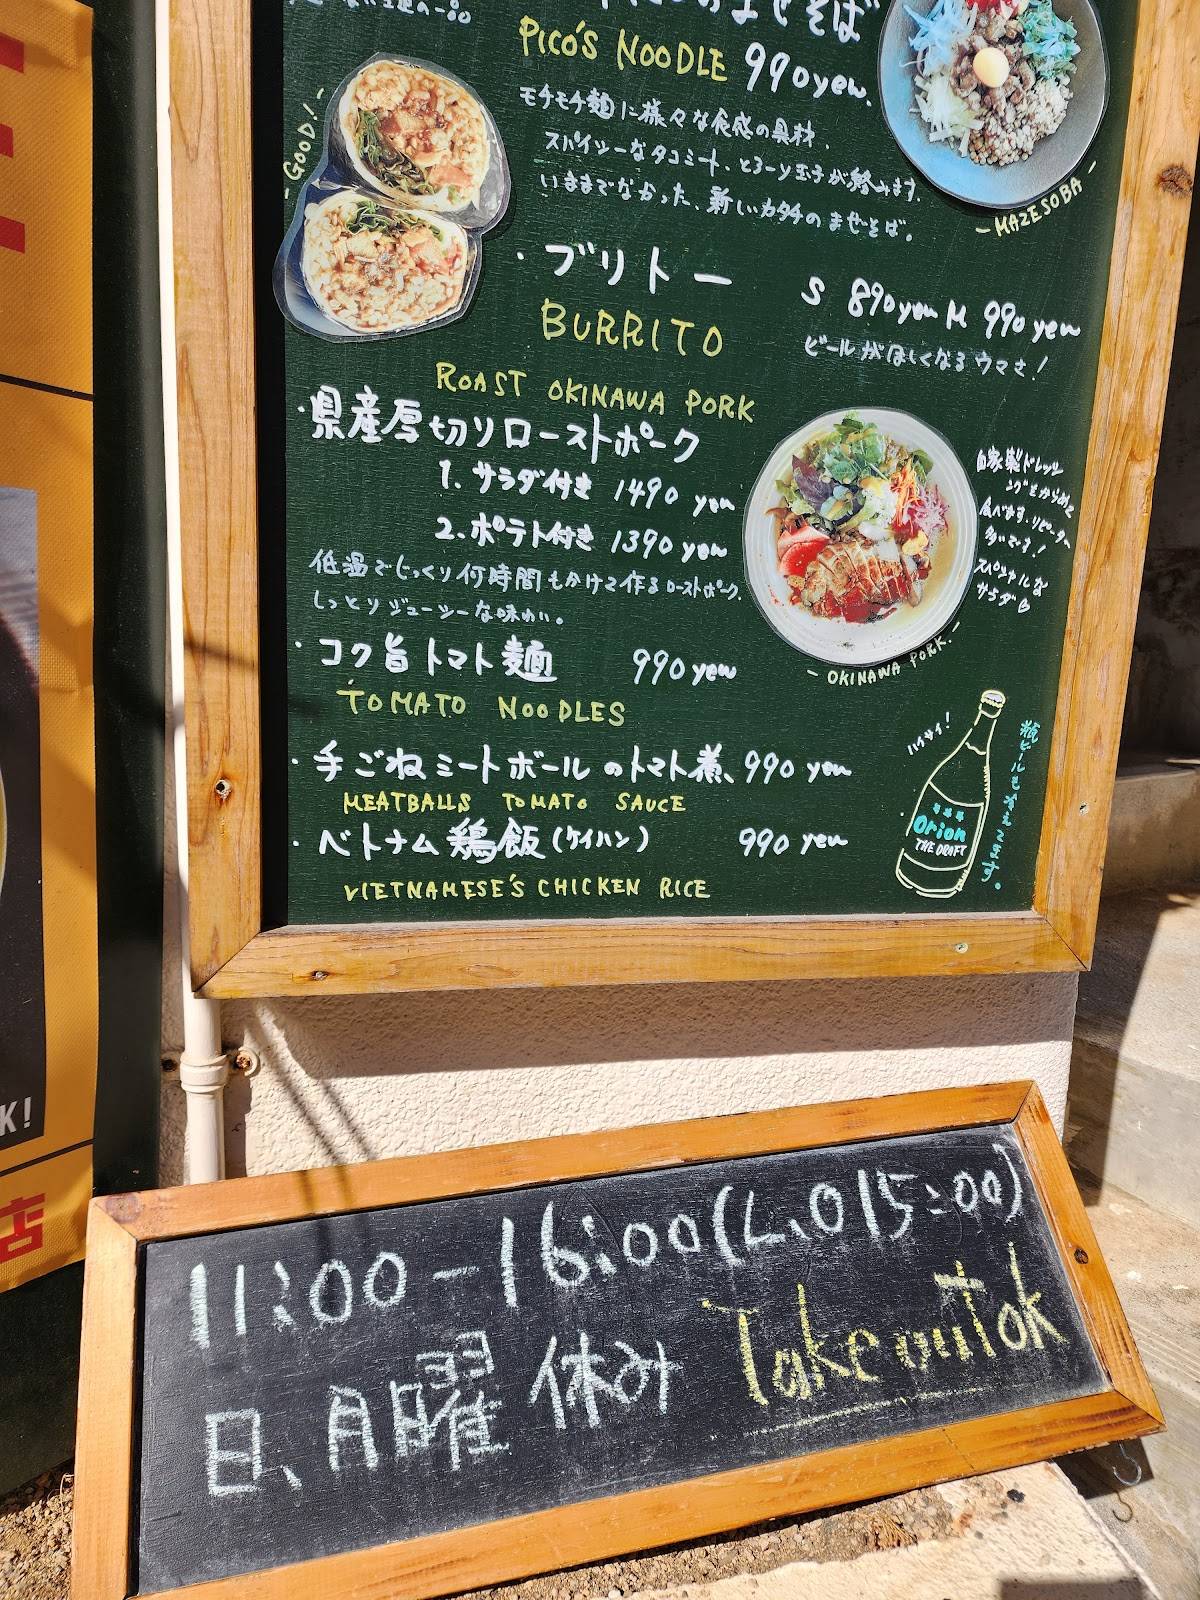 まぜそば
PICO'S NOODLE 990yen.
モチモチ麺に様々な食感の具材、
スパイシーなタコミート、とろーり玉子が絡みます。
いままでなかった、新しいカタチのまぜそば。
- MAZESOBA -
- GOOD! -
・ブリトー S 890yen M 990yen
BURRITO
ビールがほしくなるウマさ!
ROAST OKINAWA PORK
・県産厚切りローストポーク
1. サラダ付き 1490 yen
2. ポテト付き 1390 yen
低温でじっくり何時間もかけて作るローストポーク。
しっとりジューシーな味わい。
自家製ドレッシ
ングをからめて
食べやす。リピーター
多いです!
スペシャルな
サラダ♡
- OKINAWA PORK. -
・コク旨トマト麺 990yen
TOMATO NOODLES
・手ごねミートボールのトマト煮、990 yen
MEATBALLS TOMATO SAUCE
・ベトナム鶏飯(ケイハン) 990 yen
VIETNAMESE'S CHICKEN RICE
ハイサイ!
Orion
THE DRAFT
瓶ビールも
K!
店
11:00-16:00(L.O15:00)
日、月曜休み Take out ok